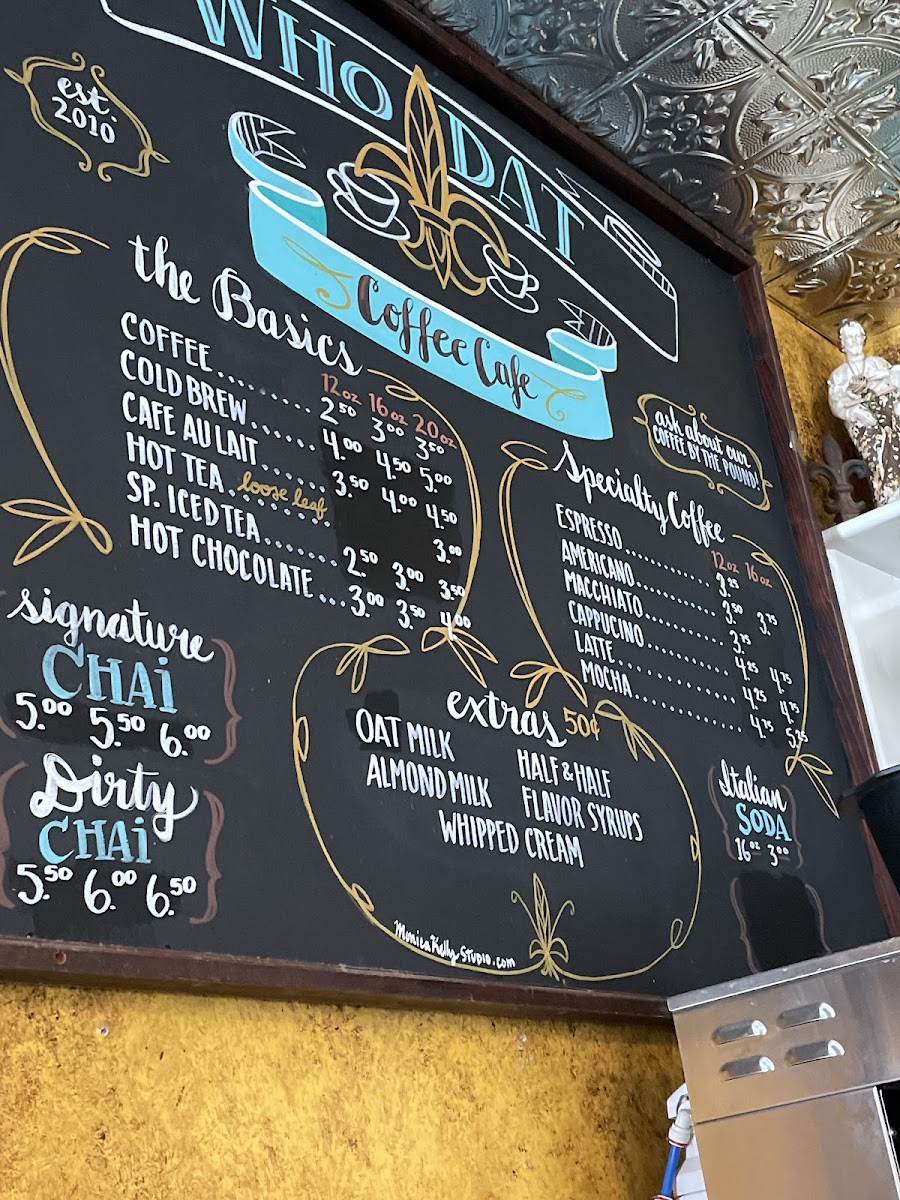 WHO DAT
est.
2010
Coffee Cafe
the Basics
12 oz 16 oz 20 oz
COFFEE .......... 2.50 3.00 3.50
COLD BREW ....... 4.00 4.50 5.00
CAFE AU LAIT ....... 3.50 4.00 4.50
HOT TEA .. loose leaf 3.00
SP. ICED TEA ....... 2.50 3.00 3.50
HOT CHOCOLATE ... 3.00 3.50 4.00
ask about our
COFFEE BY THE POUND!
Specialty Coffee
12 oz 16 oz
ESPRESSO .......... 3.25
AMERICANO .......... 3.50 3.75
MACCHIATO .......... 3.75
CAPPUCINO .......... 4.25 4.75
LATTE .......... 4.25 4.75
MOCHA .......... 4.75 5.25
signature
CHAi
5.00 5.50 6.00
Dirty
CHAi
5.50 6.00 6.50
extras 50¢
OAT MILK
HALF & HALF
ALMOND MILK
FLAVOR SYRUPS
WHIPPED CREAM
Italian
SODA
16 oz 3.00
MonicaKellyStudio.com